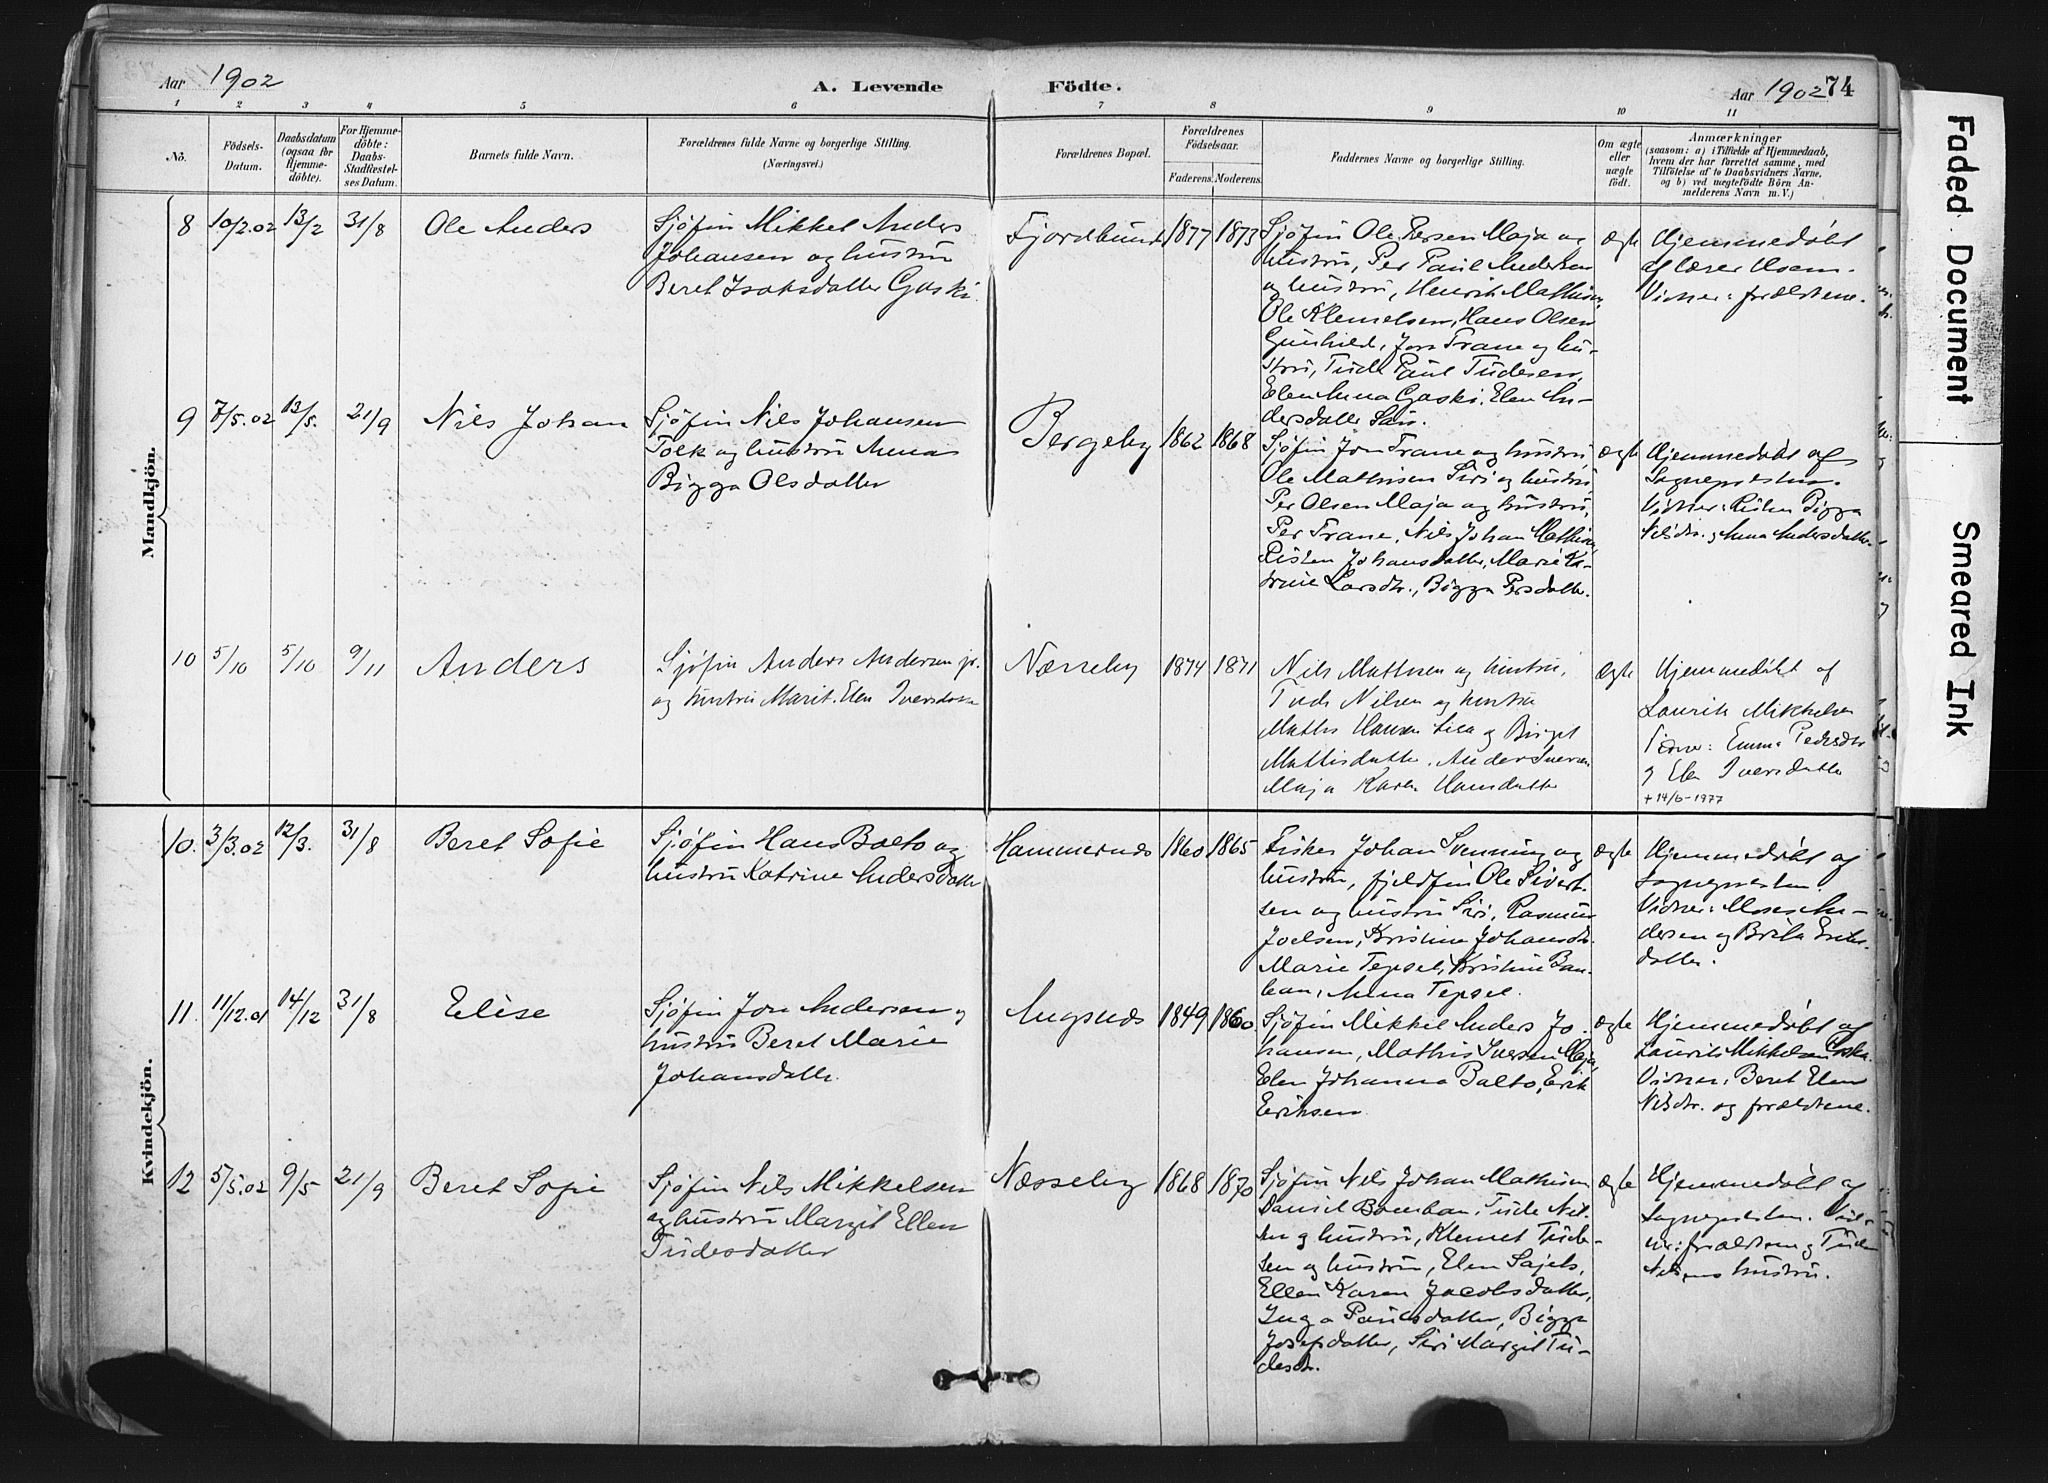 Aar 1902
A. Levende
Födte.
Aar 1902 74
1 2 3 4 5 6 7 8 9 10 11
No.
Födsels-
Datum.
Daabsdatum
(ogsaa for
Hjemme-
döbte).
For Hjemme-
döbte:
Daabs-
Stadfæstel-
ses Datum.
Barnets fulde Navn.
Forældrenes fulde Navne og borgerlige Stilling.
(Næringsvei.)
Forældrenes Bopæl.
Forældrenes
Födselsaar.
Faderens. Moderens.
Faddernes Navne og borgerlige Stilling.
Om ægte
eller
uægte
födt.
Anmærkninger
(saasom: a) i Tilfælde af Hjemmedaab,
hvem der har forrettet samme, med
Tilföielse af to Daabsvidners Navne,
og b) ved uægtefödte Börn An-
melderens Navn m. V.)
Mandkjön.
8 10/2.02 13/2 31/8 Ole Anders
Sjøfin Mikkel Anders
Johansen og hustru
Beret Isaksdatter Gaski.
Fjordbund 1877 1873
Sjøfin Ole Persen Maja og
hustru, Per Paul Andersen
og hustru, Henrik Mathisen,
Ole Klemetsen, Hans Olsen
Gunhild, Jon Trane og hu-
stru, Tude Paul Tudesen,
Elen Anna Gaski, Elen An-
dersdatter
ægte
Hjemmedøbt
af lærer
Vidner: forældrene.
9 7/5.02 13/5. 21/9 Nils Johan
Sjøfin Nils Johansen
Tolk og hustru Anna
Bigga Olsdatter
Bergeby 1862 1868
Sjøfin Jon Trane og hustru
Ole Mathisen Siri og hustru
Per Olsen Maja og hustru,
Per Trane, Nils Johan Mathisen,
Risten Johansdatter, Marie Ka-
trine Larsdtr., Bigga Persdatter.
ægte
Hjemmedøbt af
Sognepresten.
Vidner: Risten Bigga
Nilsdtr. og Anna Andersdatter.
10 5/10 5/10 9/11 Anders
Sjøfin Anders Andersen jr.
og hustru Marit Elen Iversdatter
Næsseby 1874 1871
Nils Mathisen og hustru,
Tude Nilsen og hustru
Mathis Hansen og Birget
Mathisdatter. Anders Iversen
Maja Karen Hansdatter
ægte
Hjemmedøbt af
Laurits Mikkelsen
Vidner: Emma Pedersdtr
og Elen Iversdatter
+ 14/6-1977
Kvindekjön.
10. 3/3.02 12/3. 31/8 Beret Sofie
Sjøfin Hans Balto og
hustru Katrine Andersdatter
Hammernæs 1860 1865
Fisker Johan Svenning og
hustru, fjeldfin Ole Sivert-
sen og hustru Siri, Rasmus
Joelsen, Kristine Johansdtr.
Marie Tepsel, Kristine Ban-
ban, Anna Tepsel.
ægte
Hjemmedøbt af
sognepresten
Vidner: Moses An-
dersen og Brita Eriks-
datter.
11. 11/12.01 14/12 31/8 Elise
Sjøfin Jon Andersen og
hustru Beret Marie
Johansdatter.
Angsnæs 1849 1860.
Sjøfin Mikkel Anders Jo-
hansen, Mathis Iversen Maja,
Elen Johanna Balto, Erik
Eriksen
ægte
Hjemmedøbt af
Laurits Mikkelsen
Vidner: Beret Elen
Nilsdtr. og forældrene.
12 5/5.02 9/5 21/9 Beret Sofie
Sjøfin Nils Mikkelsen
og hustru Margit Ellen
Tudesdatter
Næsseby 1868 1870
Sjøfin Nils Johan Mathisen
Daniel Banban, Tude Nil-
sen og hustru, Klemet Tude-
sen og hustru, Elen Sajets,
Ellen Karen Jacobsdatter,
Inga Paulsdatter, Bigga
Josefsdatter, Siri Margit Tu-
desdtr.
ægte
Hjemmedøbt af
sognepresten. Vid-
ner: forældrene og Tude
Nilsens hustru.
Faded Document
Smeared Ink